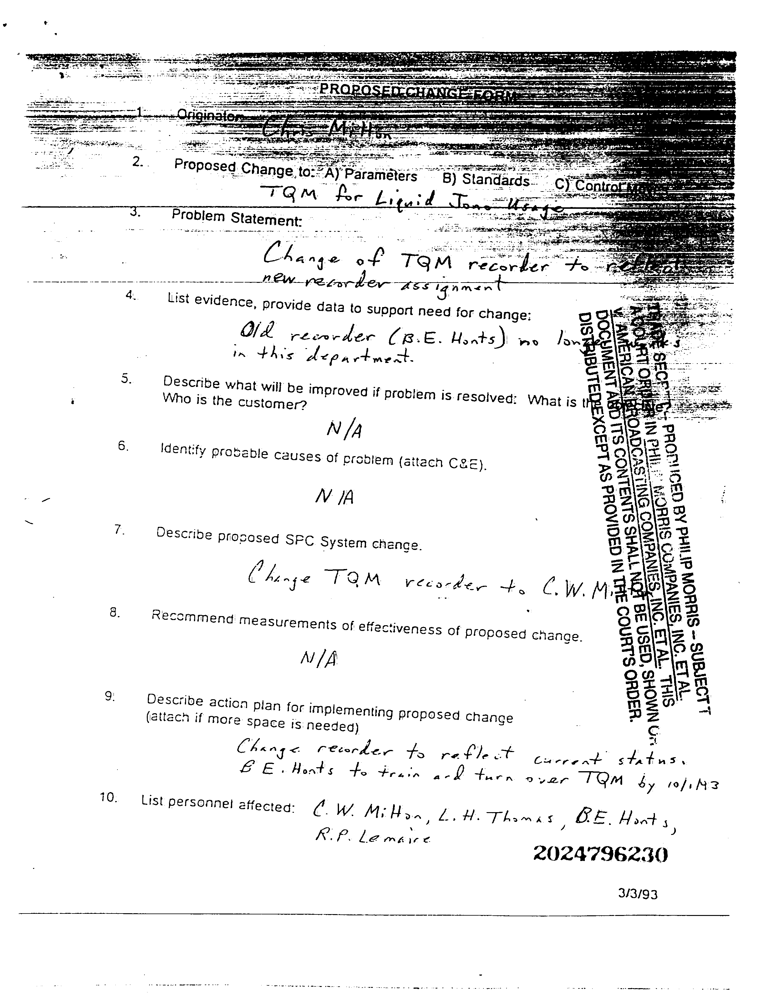 PROPOSED CHANGE FORM
1. Originator:
Chris Milton
2. Proposed Change to: A) Parameters B) Standards C) Control
TQM for Liquid Tono Usage
3. Problem Statement:
Change of TQM recorder to reflect
new recorder assignment
4. List evidence, provide data to support need for change:
Old recorder (B.E. Honts) no
in this department.
5. Describe what will be improved if problem is resolved: What is
Who is the customer?
N/A
6. Identify probable causes of problem (attach C&E).
N/A
7. Describe proposed SPC System change.
Change TQM recorder to C.W.
8. Recommend measurements of effectiveness of proposed change.
N/A
9. Describe action plan for implementing proposed change
(attach if more space is needed)
Change recorder to reflect current status.
B E. Honts to train and turn over TQM by
10. List personnel affected: C. W. Milton, L. H. Thomas, B.E. Honts,
R.P. Lemaire
2024796230
3/3/93
PRODUCED BY PHILIP MORRIS – SUBJECT T
A COURT ORDER IN PHILIP MORRIS COMPANIES, INC. ET AL.
v. AMERICAN BROADCASTING COMPANIES, INC. ET AL. THIS
DOCUMENT AND ITS CONTENTS SHALL NOT BE USED, SHOWN OR
DISTRIBUTED EXCEPT AS PROVIDED IN THE COURT'S ORDER.